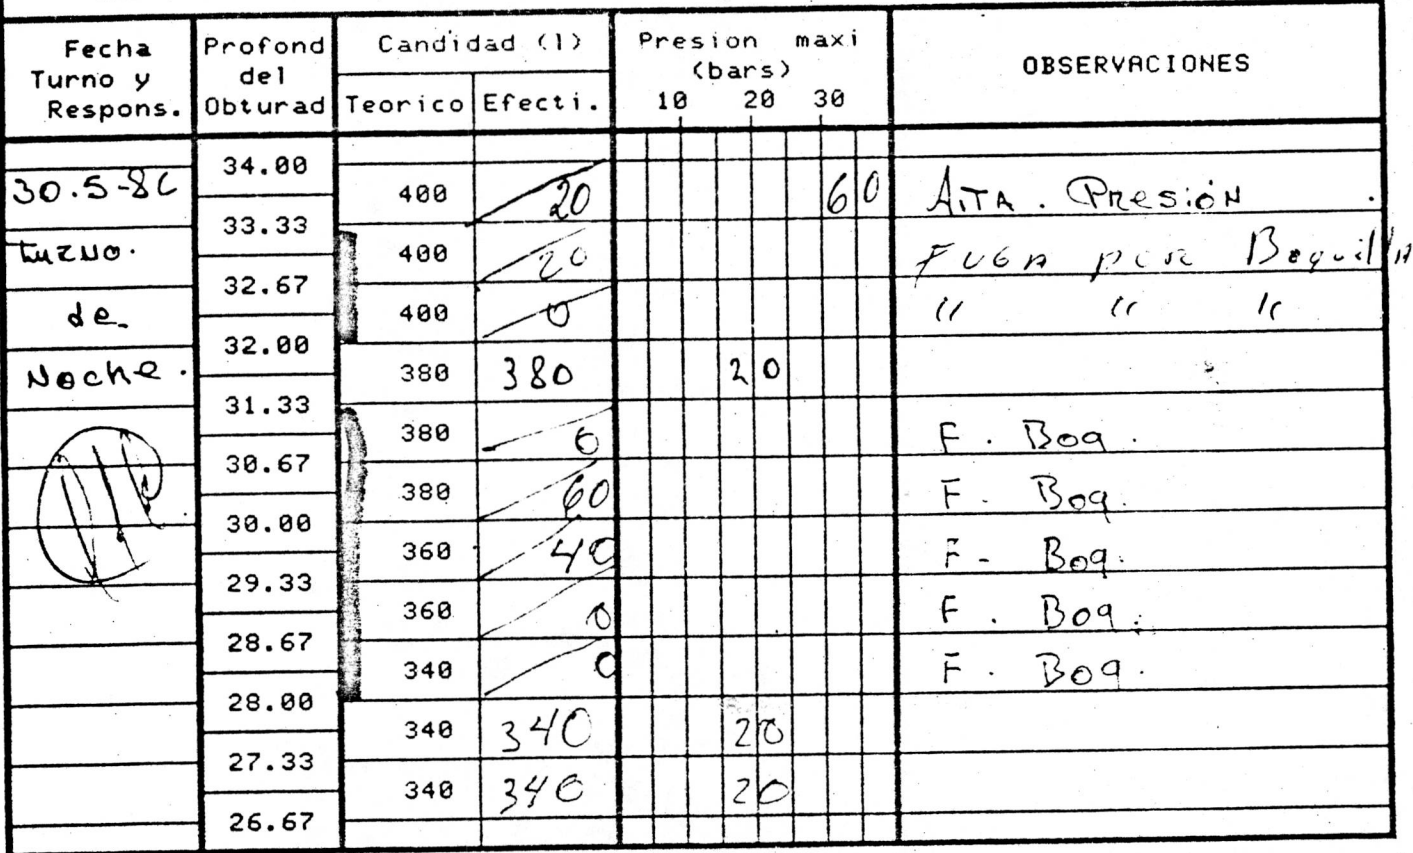 Fecha Turno y Respons. Profond del Obturad Candidad (l) Teorico Efecti. Presion maxi (bars) 10 20 30 OBSERVACIONES
34.00
30.5-86 400 20 60 AlTA. Presión.
33.33
turno. 400 20 FUGA por Boquilla
32.67
de 400 0 " " "
32.00
Noche. 380 380 20
31.33
380 0 F. Boq.
30.67
380 60 F. Boq.
30.00
360 40 F- Boq.
29.33
360 0 F. Boq.
28.67
340 0 F. Boq.
28.00
340 340 20
27.33
340 340 20
26.67